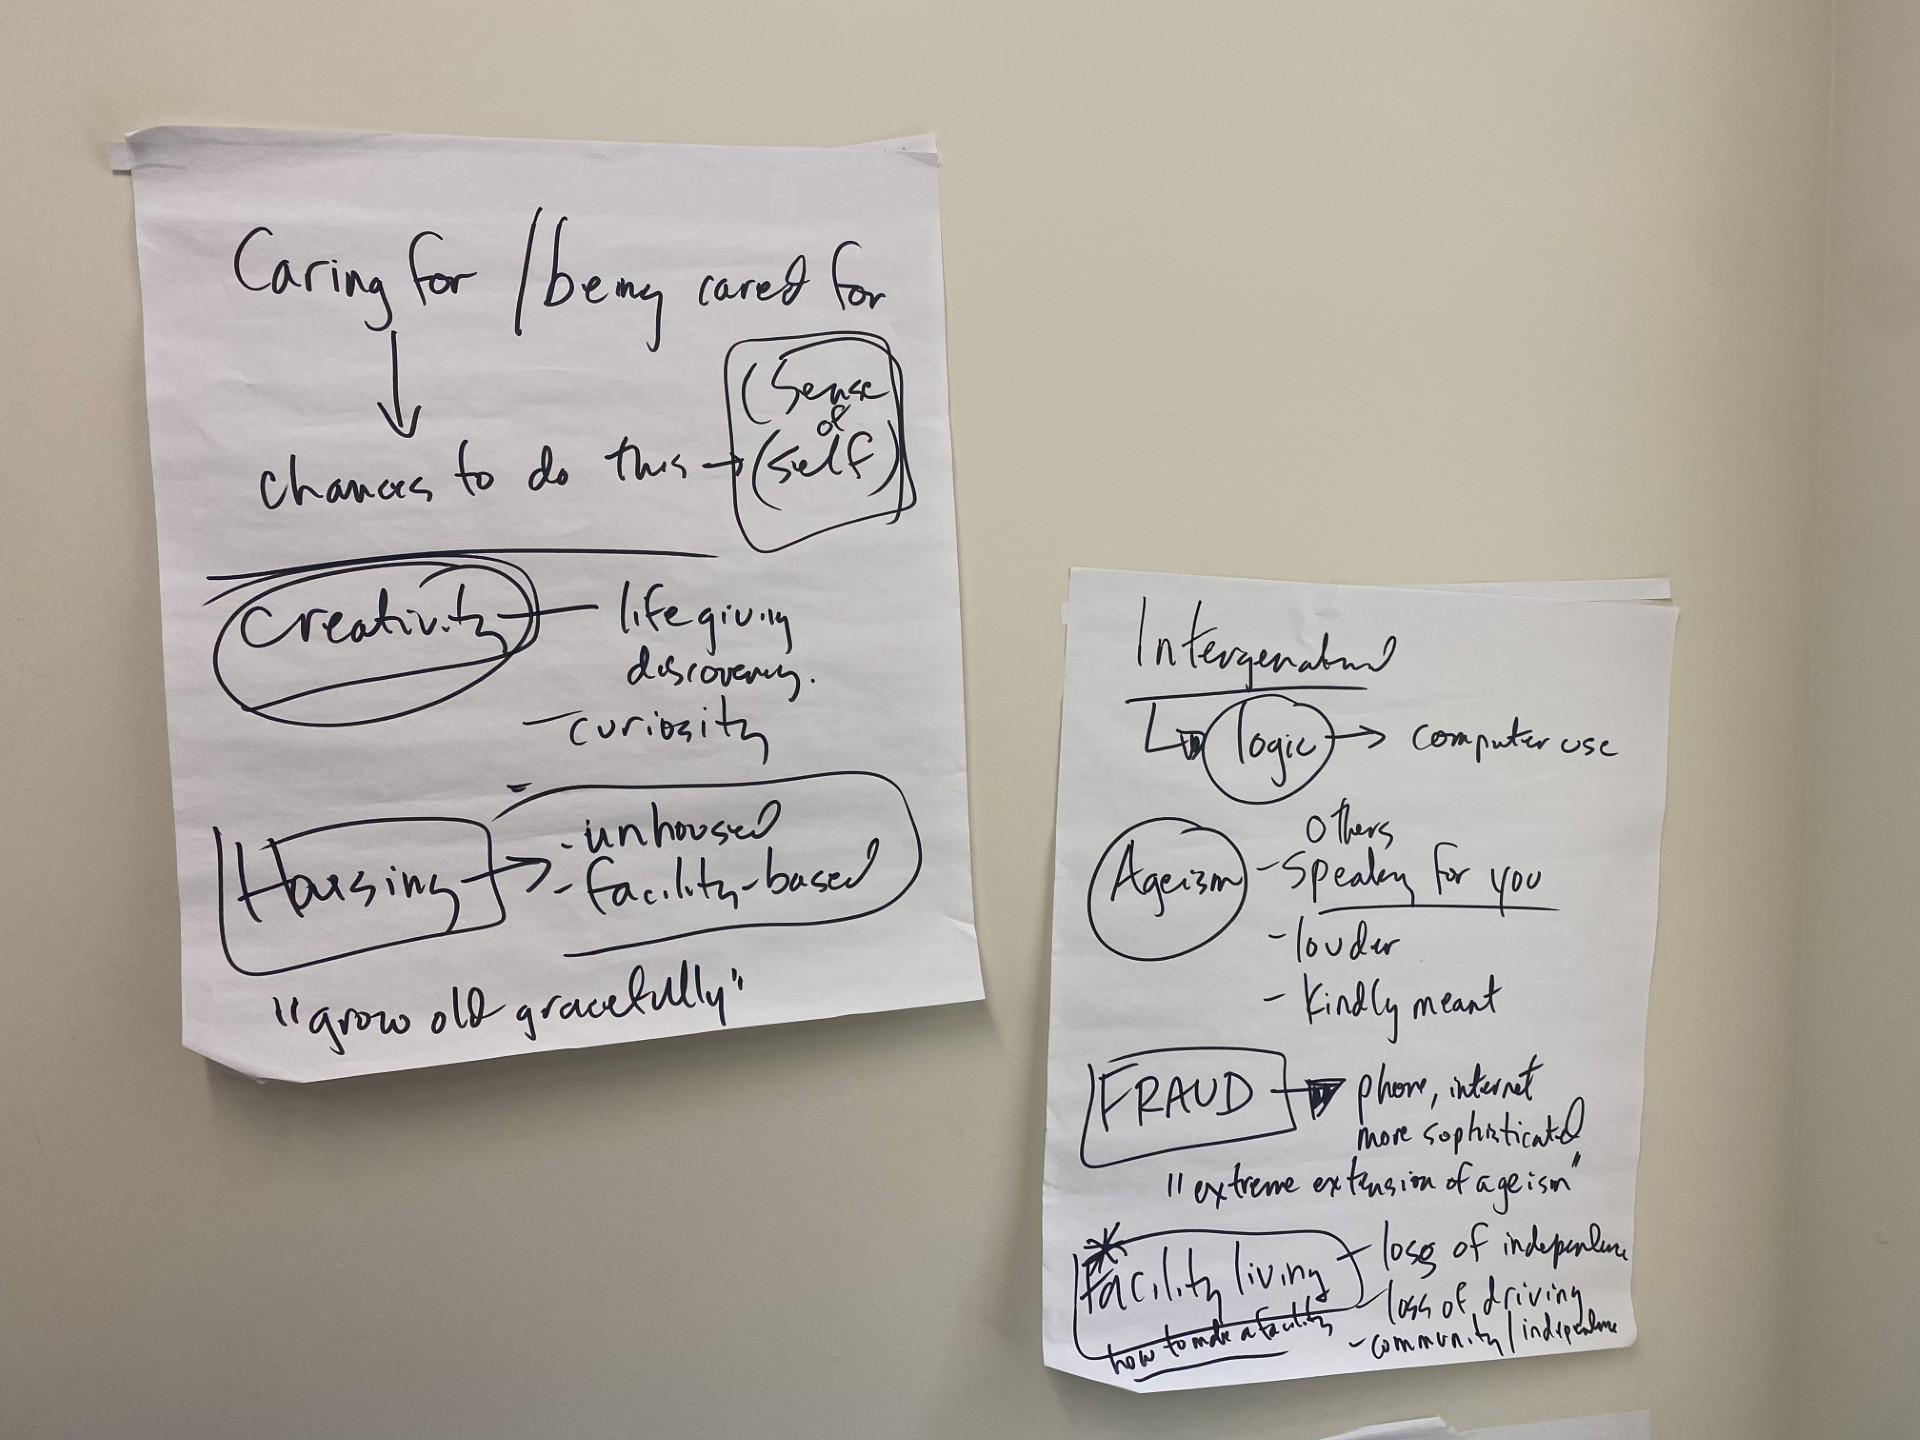 Caring for / being cared for
chances to do this → (Sense
of
(self)
Creativity — life giving
discovery.
- curiosity
Housing → - unhoused
- facility-based
"grow old gracefully"
Intergenerational
logic → computer use
Others
Ageism - speaking for you
- louder
- kindly meant
FRAUD → phone, internet
more sophisticated
"extreme extension of ageism"
* facility living - loss of independence
- loss of driving
how to make a facility
- community / independence